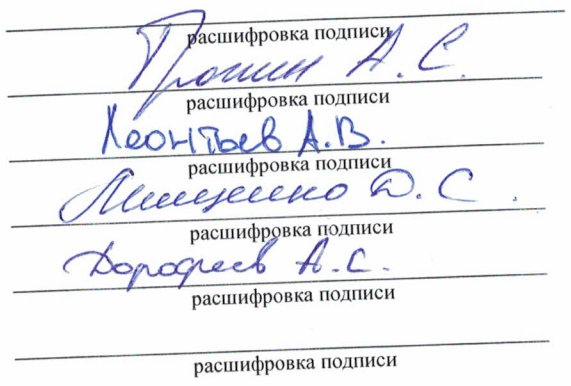 расшифровка подписи
Пронин А. С.
расшифровка подписи
Леонтьев А.В.
расшифровка подписи
Мищенко Д. С.
расшифровка подписи
Дорофеев А.С.
расшифровка подписи
расшифровка подписи